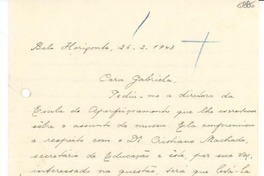 Belo Horizonte, 26-2-1943
Cara Gabriela,
Pediu-me a diretora da
Escola de Aperfeiçoamento que lhe escrevesse
sôbre o assunto de museu. Ela
a respeito com o Dr. Cristiano Machado,
secretário de Educação e êste, por sua vez,
interessado na questão, será que